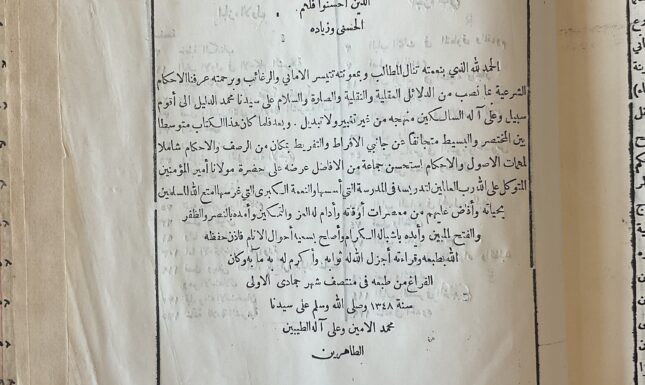 الذين أحسنوا فلهم
الحسنى وزياده
الحمد لله الذي بنعمته تنال المطالب وبمعونته تتيسر الاماني والرغائب وبرحمته عرفنا الاحكام
الشرعية بما نصب من الدلائل العقلية والنقلية والصلوة والسلام على سيدنا محمد الدليل الى أقوم
سبيل وعلى آله السالكين منهجه من غير تغيير ولا تبديل . وبعد فلما كان هذا الكتاب متوسطا
بين المختصر والبسيط متجانفا عن جانبي الافراط والتفريط بمكان من الرصف والاحكام شاملا
لمهمات الاصول والاحكام استحسن جماعة من الافاضل عرضه على حضرة مولانا أمير المؤمنين
المتوكل على الله رب العالمين لتدريسه في المدرسة التي أسسها والنعمة الكبرى التي غرسها امتع الله المسلمين
بحياته وأفاض عليهم من معصرات أوقاته وأدام له العز والتمكين وأمده بالنصر والظفر
والفتح المبين وأيده باشباله الكرام وأصلح بسعيه أحوال الانام فاذن حفظه
الله بطبعه وقراءته أجزل الله له ثوابه وأكرم له نه مآبه وكان
الفراغ من طبعه في منتصف شهر جمادى الاولى
سنة ١٣٤٨ وصلى الله وسلم على سيدنا
محمد الامين وعلى آله الطيبين
الطاهرين